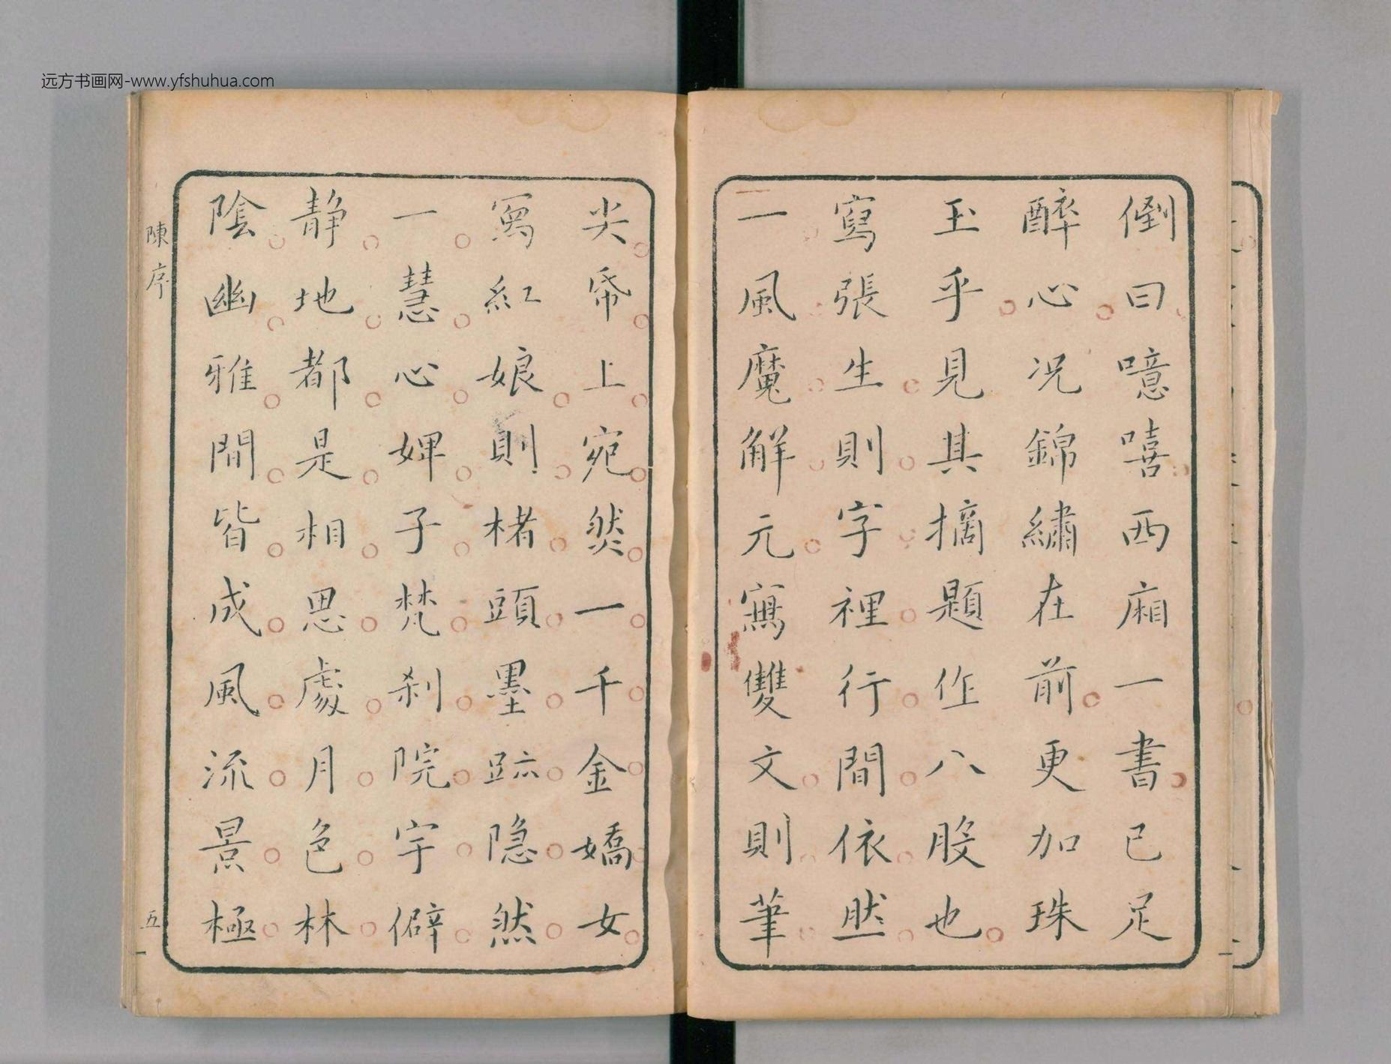 远方书画网-www.yfshuhua.com
倒曰噫嘻西廂一書已足
醉心况錦繡在前更加珠
玉乎見其摘題作八股也
寫張生則字裡行間依然
一風魔解元寫雙文則筆
尖帋上宛然一千金嬌女
寫紅娘則楮頭墨跡隐然
一慧心婢子梵刹院宇僻
静地都是相思處月色林
陰幽雅間皆成風流景極
陳序
五